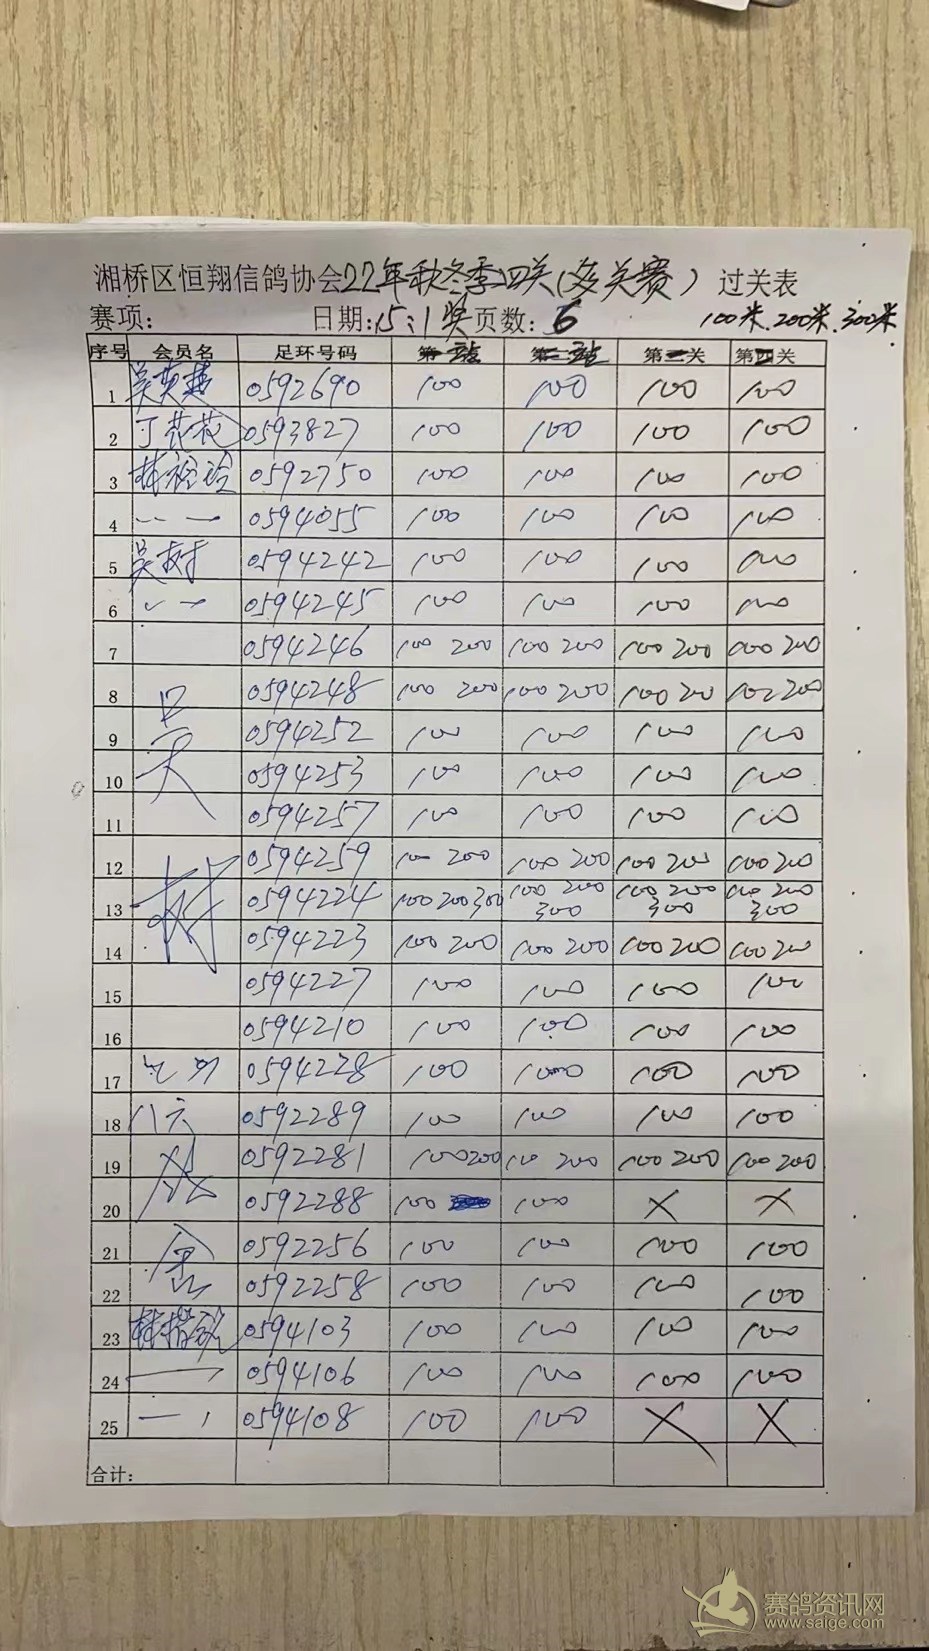 湘桥区恒翔信鸽协会22年秋冬季四关(多关赛)过关表
赛项: 日期:15:1奖页数:6 100米.200米.300米
序号 会员名 足环号码 第一站 第二站 第三关 第四关
1 0592690 100 100 100 100
2 丁茂茂 0593827 100 100 100 100
3 0592750 100 100 100 100
4 0594055 100 100 100 100
5 吴树 0594242 100 100 100 100
6 0594245 100 100 100 100
7 0594246 100 200 100 200 100 200 100 200
8 吴 0594248 100 200 100 200 100 200 100 200
9 0594252 100 100 100 100
10 0594253 100 100 100 100
11 0594257 100 100 100 100
12 0594259 100 200 100 200 100 200 100 200
13 树 0594224 100 200 300 100 200 300 100 200 300 100 200 300
14 0594223 100 200 100 200 100 200 100 200
15 0594227 100 100 100 100
16 0594210 100 100 100 100
17 0594228 100 100 100 100
18 0592289 100 100 100 100
19 0592281 100 200 100 200 100 200 100 200
20 0592288 100 100 × ×
21 0592256 100 100 100 100
22 0592258 100 100 100 100
23 0594103 100 100 100 100
24 0594106 100 100 100 100
25 0594108 100 100 × ×
合计:
赛鸽资讯网
www.saige.com